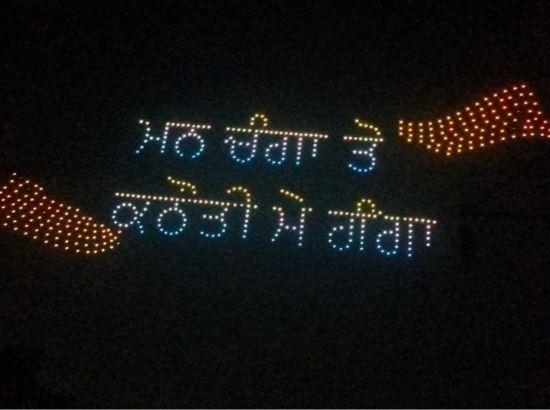 ਮਨ ਚੰਗਾ ਤੇ
ਕਠੌਤੀ ਮੇ ਗੰਗਾ